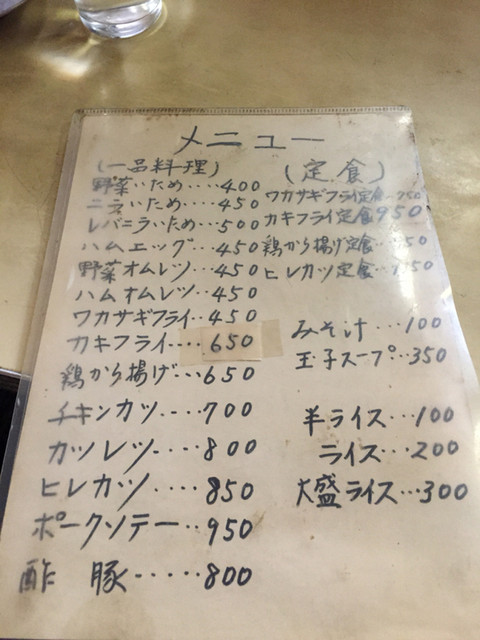 メニュー
(一品料理)
野菜いため‥‥400
ニラいため‥450
レバニラいため‥500
ハムエッグ‥450
野菜オムレツ‥450
ハムオムレツ‥450
ワカサギフライ‥450
カキフライ‥‥650
鶏から揚げ…650
チキンカツ‥‥700
カツレツ‥‥800
ヒレカツ‥‥850
ポークソテー‥950
酢 豚‥‥‥800
(定食)
ワカサギフライ定食‥750
カキフライ定食950
鶏から揚げ定食
ヒレカツ定食
みそ汁…100
玉子スープ‥350
半ライス…100
ライス…200
大盛ライス…300